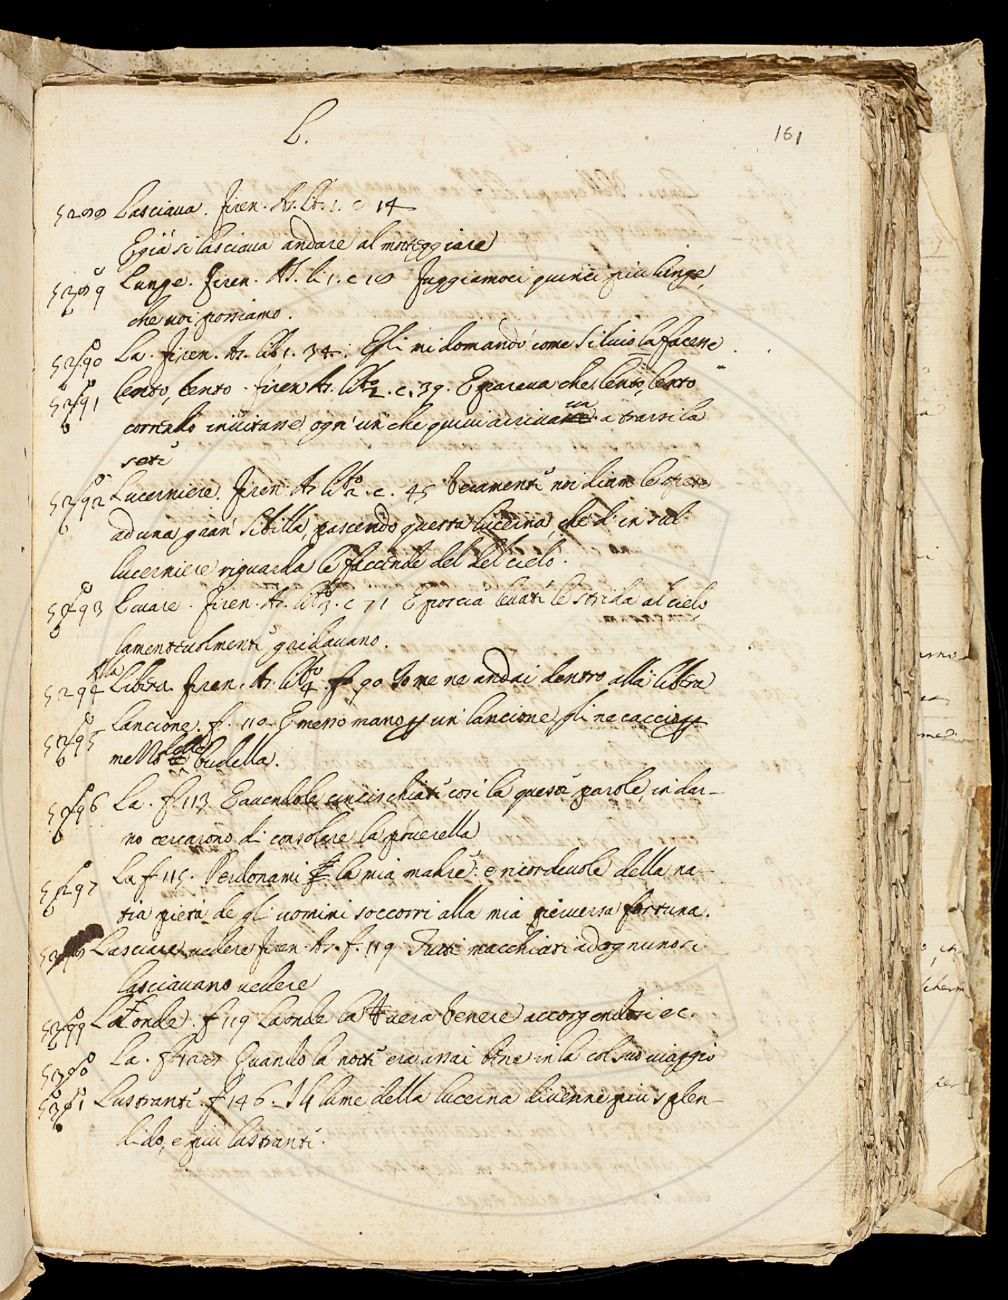 L.
161
5288 Lasciaua. Firen. As. lib. 1. c 14
E già si lasciaua andare al motteggiare
5289 Lunge. Firen. As. li 1. c 18 Fuggiamoci quinci piu lunge,
che noi possiamo.
5290 La. Firen. As. lib 1. 34. Egli mi domandò come Siluio la facesse
5291 lento, lento. Firen As. lib.º 2. c. 39. E pareua che lento, lento
correndo inuitasse ogn' un che quiui arriuaua a trarsi la
sete
5292 Lucerniere. Firen. As lib.º 2. c. 45 Veramente noi diam le spese
ad una gran Sibilla, pascendo questa lucerna, che d' in sul
lucerniere riguarda le faccende del del cielo.
5293 Leuare. Firen. As. lib.º 3. c 71 E poscia leuate le strida al cielo
lamenteuolmente gridauano.
5294 Alla Libera. Firen. As. lib.º 4. f. 90 Io me na andai dentro alla libera
5295 Lancione. f. 110. E messo mano per un lancione, gli ne cacciò per
mezzo delle budella.
5296 La. f. 113 E auendole cincischiate così la queste parole, in dar-
no cercarono di consolare la pouerella
5297 La f 115. Perdonami per la mia madre: e ricordeuole della na-
tia pietà de gli uomini soccorri alla mia peruersa fortuna.
5298 Lasciare vedere Firen. As. f. 119 Tutti macchiati ad ognuno si
lasciauano uedere
5299 La Onde. f 119 Laonde la uera Venere accorgendosi ec.
5300 La. f 128 Quando la notte era assai bene in la col suo uiaggio
5301 Lustrante. f 146. Il lume della lucerna diuenne piu splen-
dido, e più lustrante.